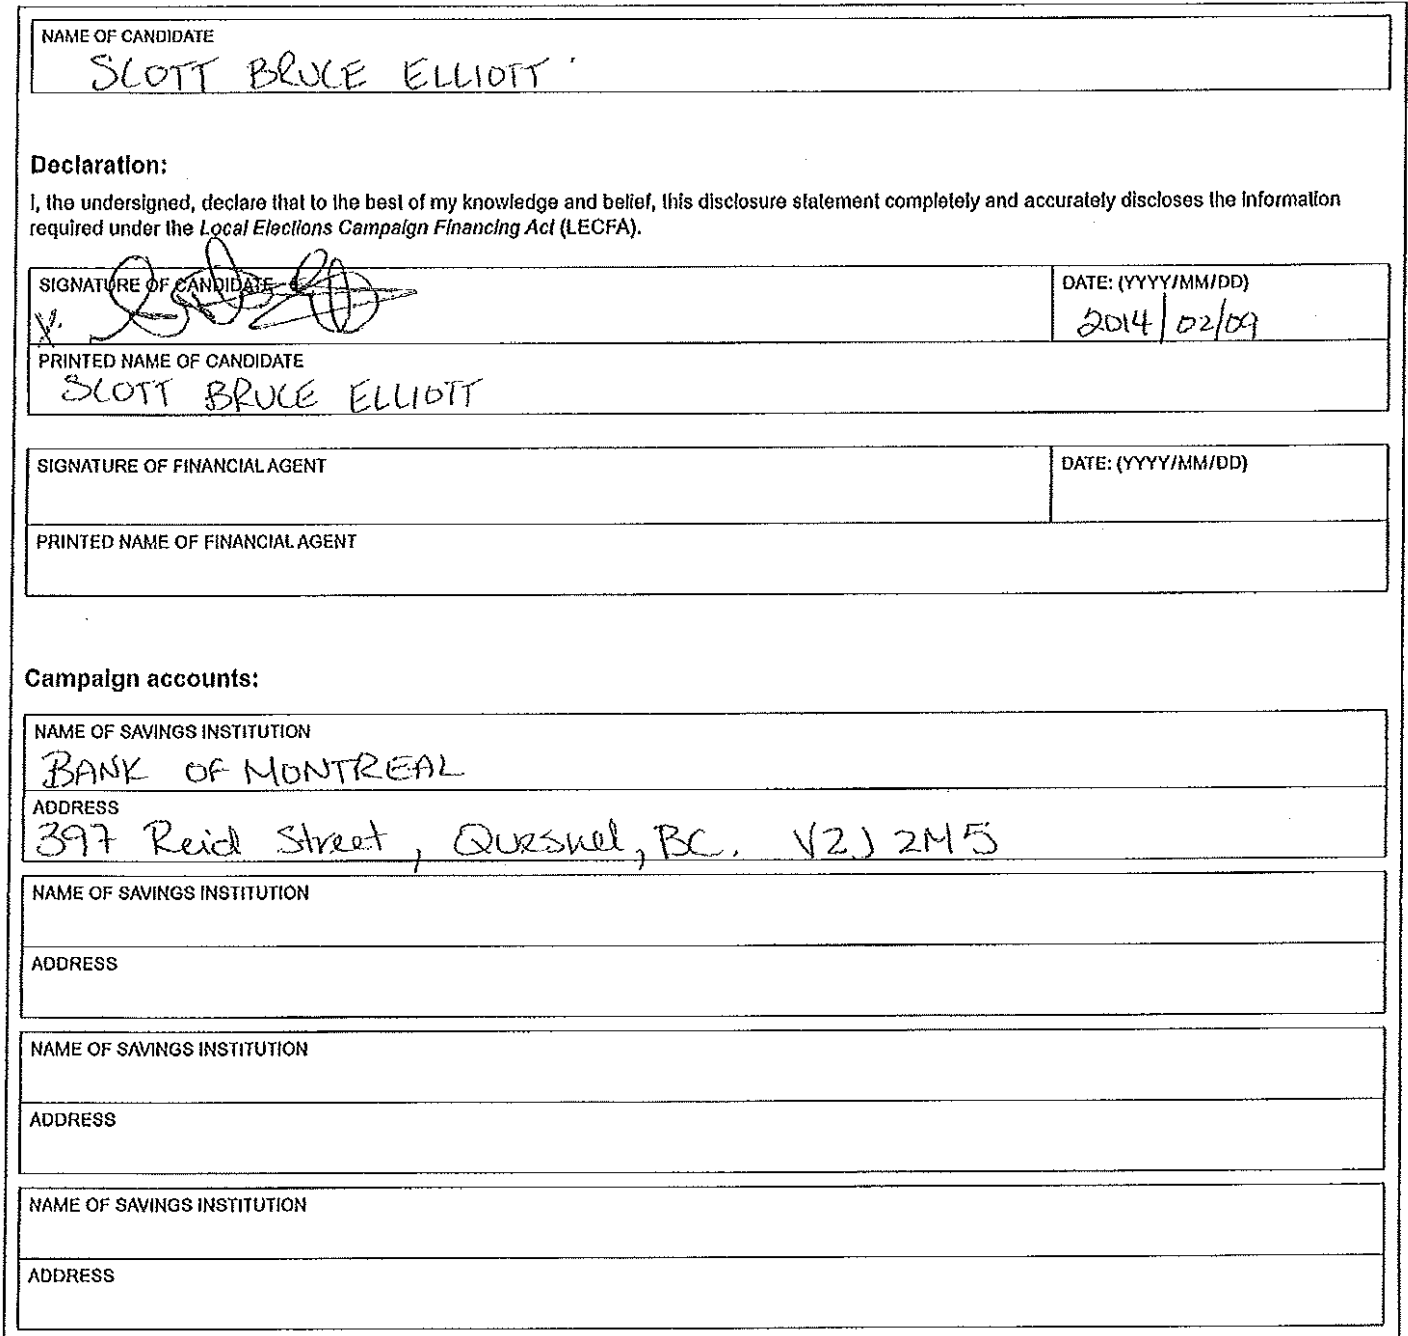 NAME OF CANDIDATE
SCOTT BRUCE ELLIOTT
Declaration:
I, the undersigned, declare that to the best of my knowledge and belief, this disclosure statement completely and accurately discloses the information
required under the Local Elections Campaign Financing Act (LECFA).
SIGNATURE OF CANDIDATE
DATE: (YYYY/MM/DD)
X.
2014/02/09
PRINTED NAME OF CANDIDATE
SCOTT BRUCE ELLIOTT
SIGNATURE OF FINANCIAL AGENT
DATE: (YYYY/MM/DD)
PRINTED NAME OF FINANCIAL AGENT
Campaign accounts:
NAME OF SAVINGS INSTITUTION
BANK OF MONTREAL
ADDRESS
397 Reid Street, Quesnel, BC. V2J 2M5
NAME OF SAVINGS INSTITUTION
ADDRESS
NAME OF SAVINGS INSTITUTION
ADDRESS
NAME OF SAVINGS INSTITUTION
ADDRESS